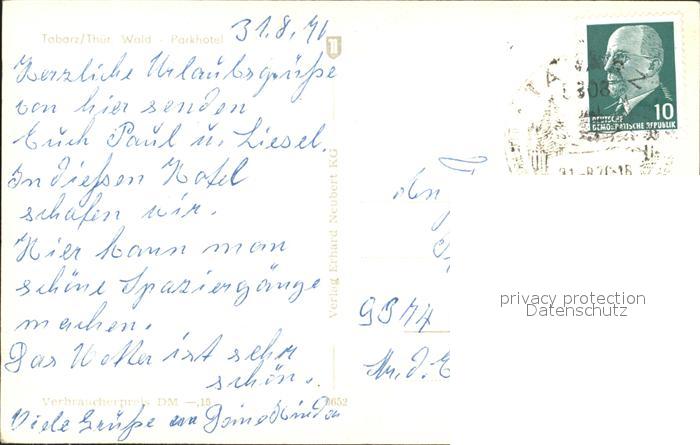 Tabarz/Thür. Wald - Parkhotel
31.8.71
Herzliche Urlaubsgrüße
von hier senden
Euch Paul u. Liesel.
In dießen Hotel
schafen wir.
Hier kann man
schöne Spaziergänge
machen.
Das Wetter ist sehr
schön.
Verbraucherpreis DM —,15
Viele Grüße
Verlag Erhard Neubert KG
10
DEUTSCHE
DEMOKRATISCHE REPUBLIK
privacy protection
Datenschutz